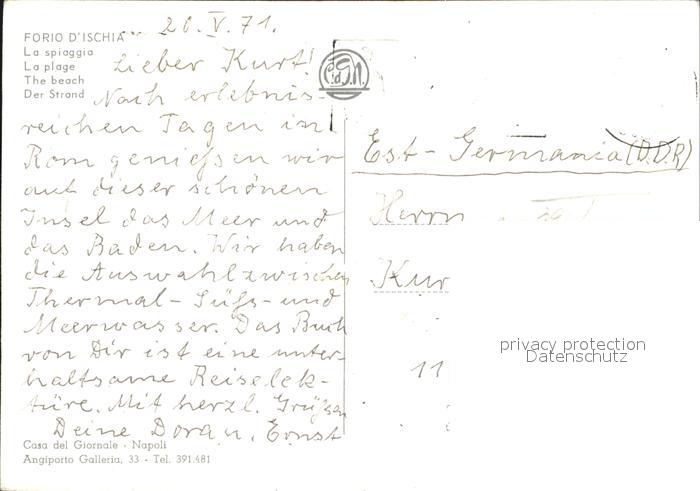 FORIO D'ISCHIA
La spiaggia
La plage
The beach
Der Strand
20. V. 71.
Lieber Kurt!
Nach erlebnis-
reichen Tagen in
Rom genießen wir
auf dieser schönen
Insel das Meer und
das Baden. Wir haben
die Auswahl zwischen
Thermal- Süß- und
Meerwasser. Das Buch
von Dir ist eine unter-
haltsame Reiselek-
türe. Mit herzl. Grüßen
Deine Dora u. Ernst
Casa del Giornale - Napoli
Angiporto Galleria, 33 - Tel. 391.481
Est-Germania (D.D.R)
Herrn
Kur
privacy protection
Datenschutz
11